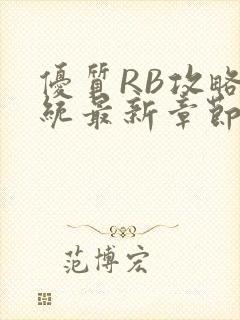 優質RB攻略
統最新章節
范博宏